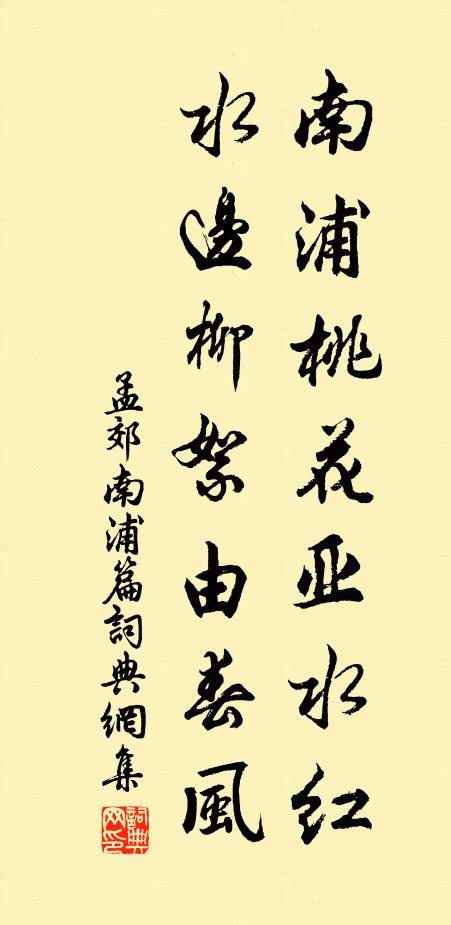 南浦桃花亚水红
水邊柳絮由春風
孟郊南浦篇詞典網集
詞典
网印